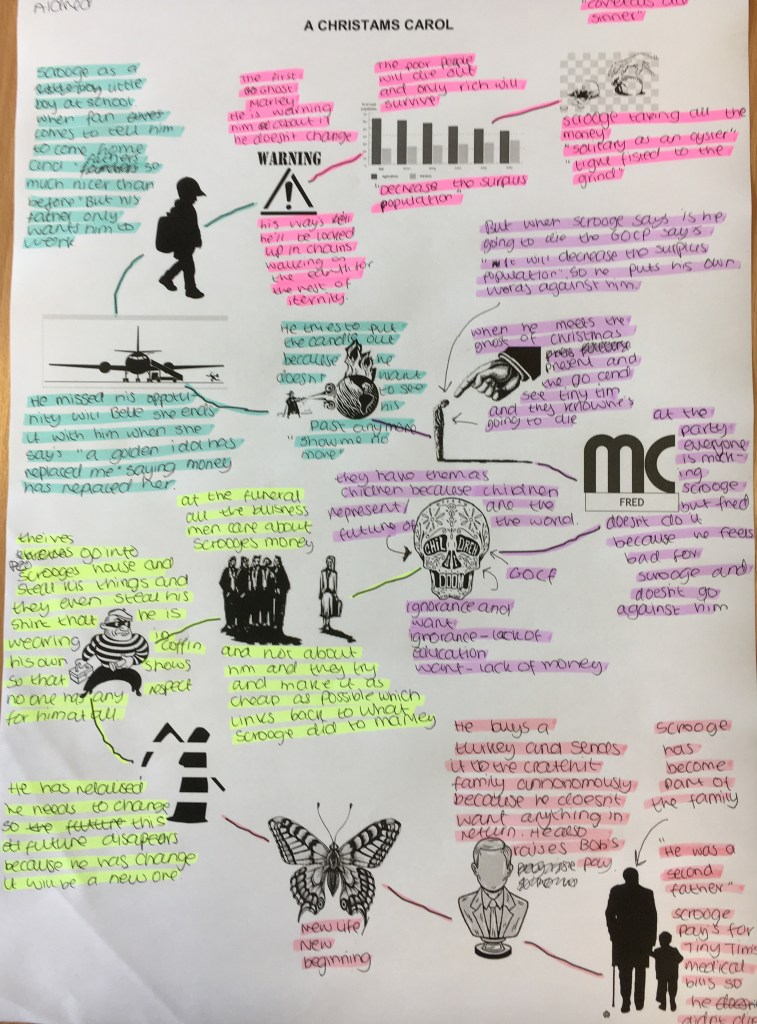 Aloned
"covetous old
sinner"
A CHRISTAMS CAROL
The poor people
will die out
and only rich will
survive
"decrease the surplus
population"
scrooge taking all the
money
"solitary as an oyster"
"tight fisted to the
grind"
The first
Ghost
Marley
He is warning
him about if
he doesn't change
WARNING
his ways
he'll be locked
up in chains
walking on
the earth for
the rest of
iternity.
scrooge as a
little
boy at school
when fan
comes to tell him
to come home
and "fathers so
much nicer than
before" But his
father only
wants him to
work
He missed his oppotu-
nity will Belle she ends
it with him when she
says "a golden idol has
replaced me" saying money
has replaced her.
He tries to put
the candle out
because he
doesn't want
to see
his
past anymore
"show me no
more"
But when scrooge says is he
going to die the GOCP says
"it will decrease the surplus
population". So he puts his own
words against him.
when he meets the
ghost of christmas
present and
the go
see tiny tim
and they know he's
going to die
MC
FRED
at the
party
everyone
is mock-
ing
scrooge
but fred
doesn't do it
because he feels
bad for
scrooge and
doesn't go
against him
they have them as
children because children
represent are the
future of the world.
CHILDRED
DOOM
GOCF
ignorance and
want
ignorance - lack of
education
want - lack of money
at the funeral
all the business
men care about
scrooges money
and not about
him and they try
and make it as
cheap as possible which
links back to what
scrooge did to marley
theives
go into
scrooges house and
steal his things and
they even steal his
shirt that he is
wearing in
his own coffin
so that shows
no one has any respect
for him at all.
He has relaised
he needs to change
so this
future disapears
because he has change
it will be a new one.
new life,
new
beginning
He buys a
turkey and sends
it to the cratchit
family annonomously
because he doesnt
want anything in
return. He also
raises Bob's
pay.
scrooge
has
become
part of
the family
"He was a
second
father"
scrooge
pay's for
Tiny Tims
medical
bills so
he
didnt die